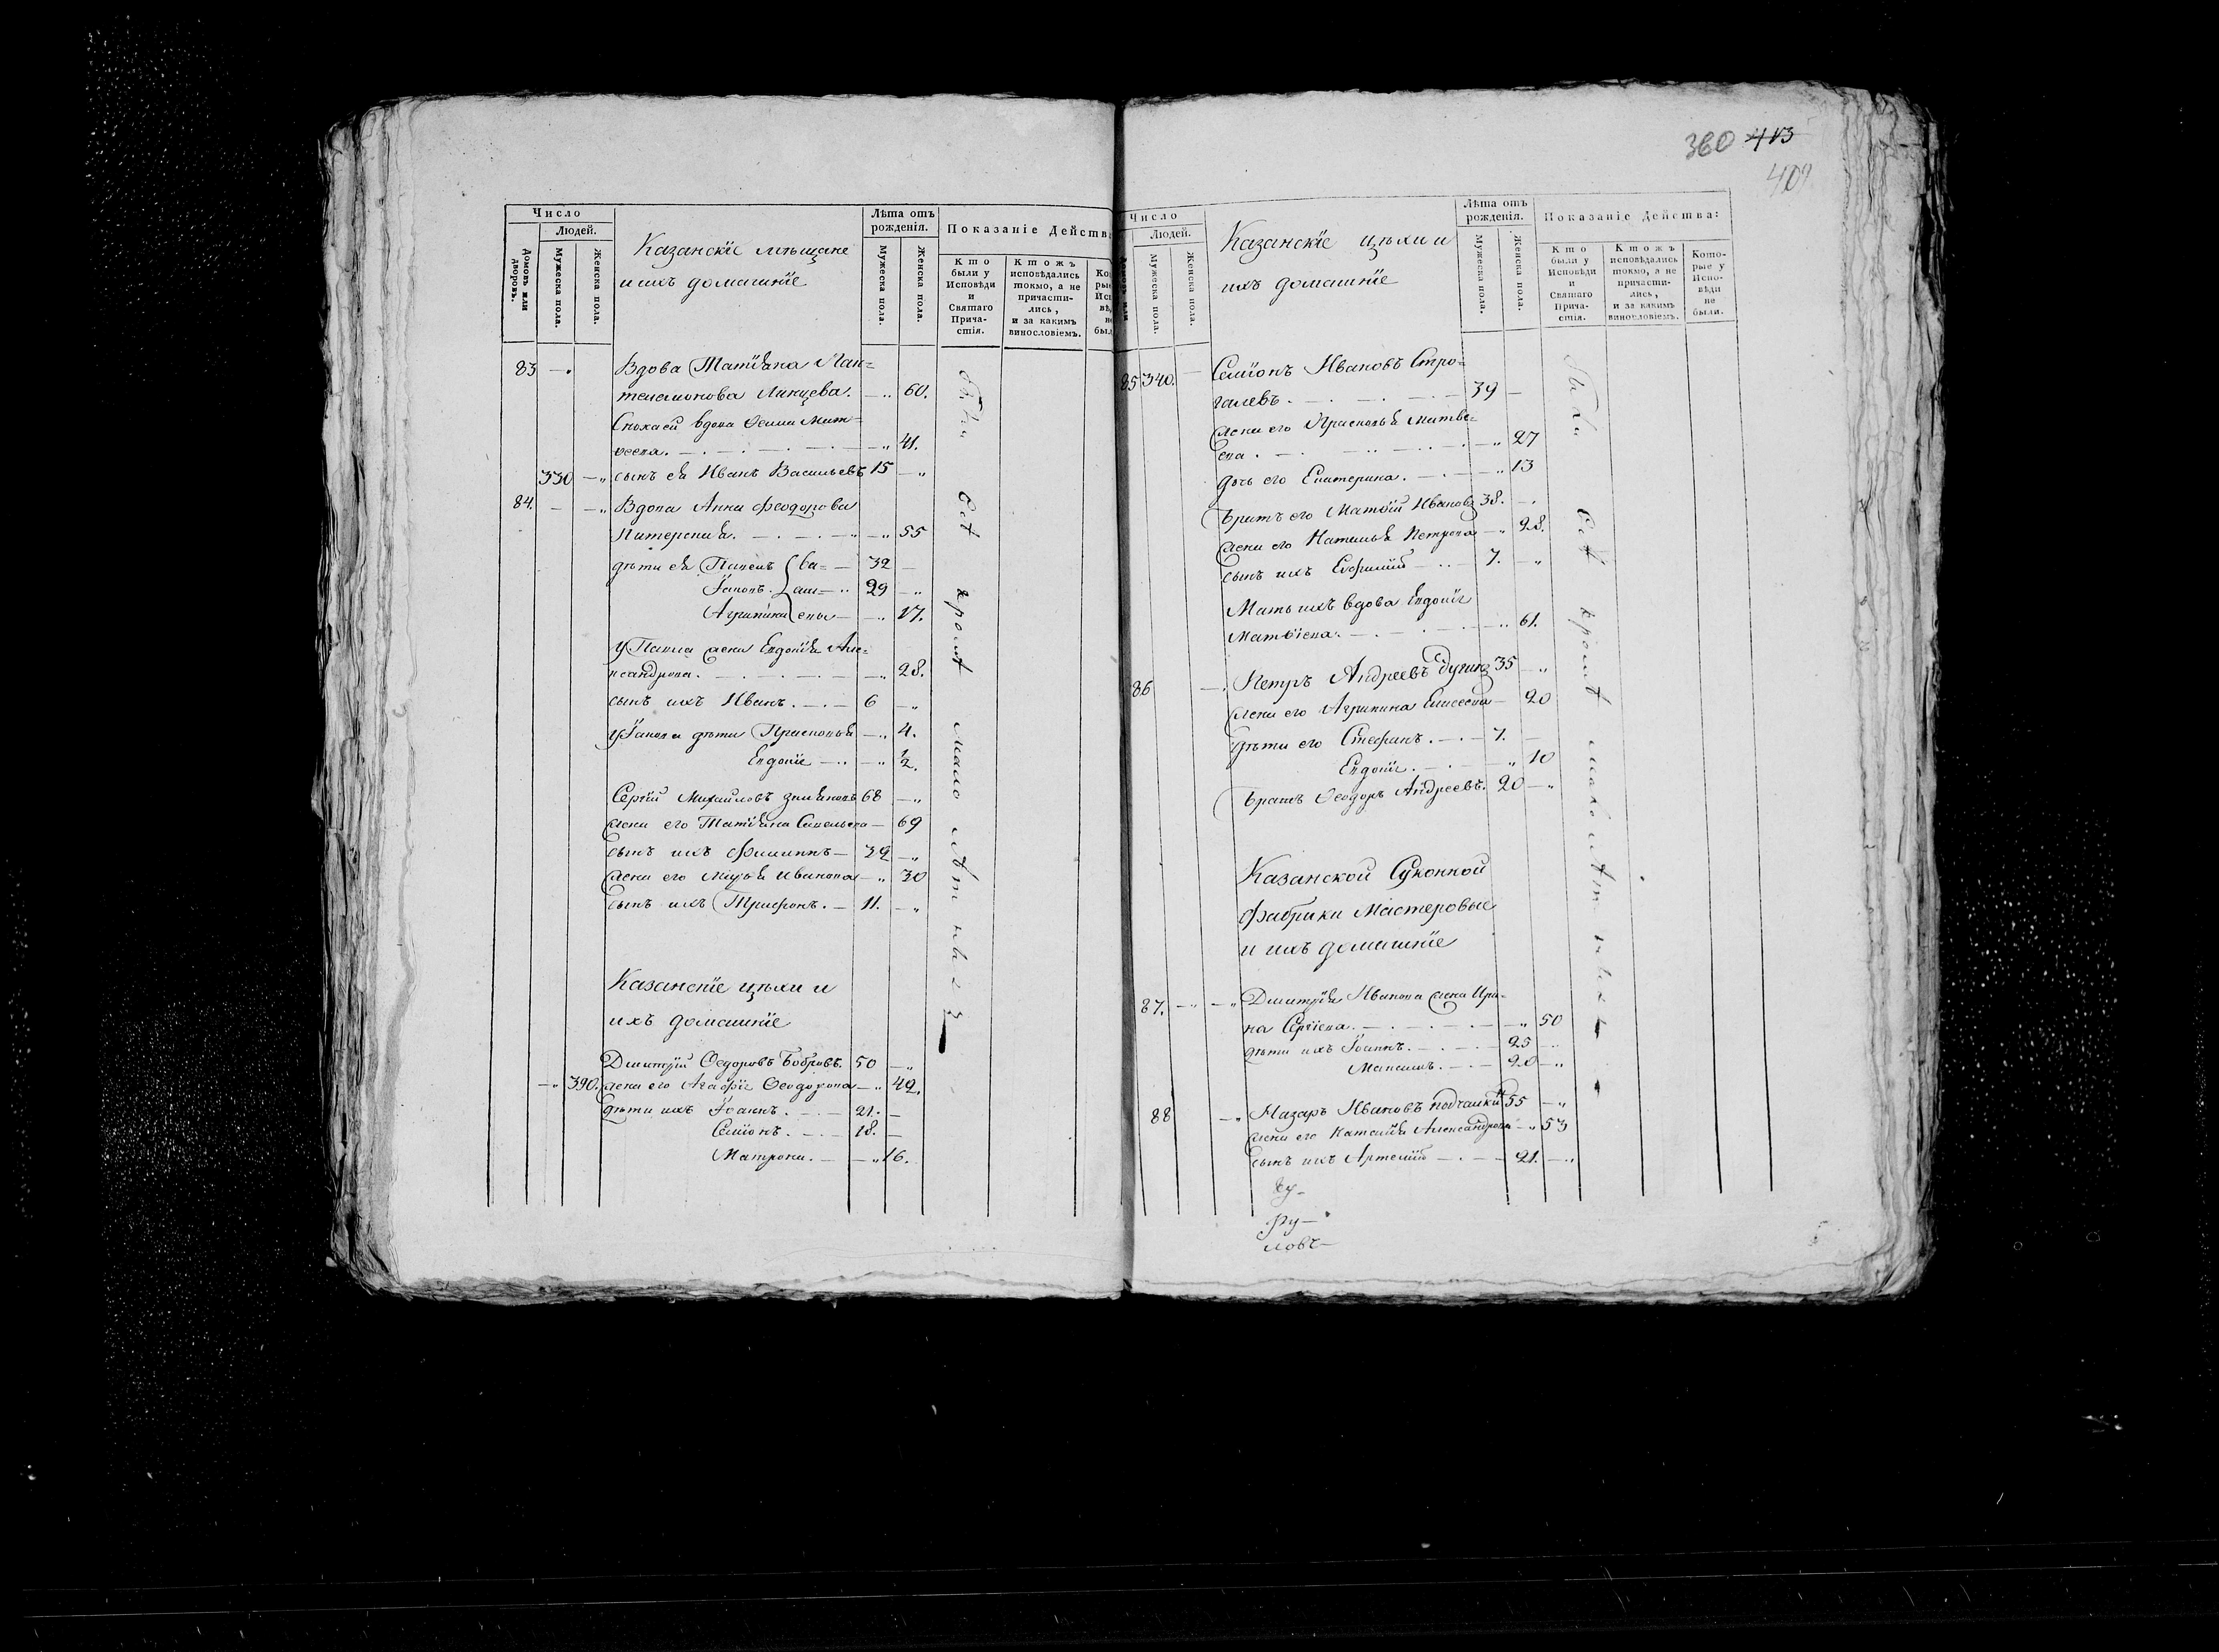 360 413
409
Число
Людей.
Домовъ или дворовъ.
Мужеска пола.
Женска пола.
Казанскіе мѣщане
и ихъ домашніе
Лѣта отъ рожденія.
Мужеска пола.
Женска пола.
Показаніе Действ
Кто были у Исповѣди и Святаго Прича- стія.
Ктожъ исповѣдались токмо, а не причасти- лись, и за какимъ винословіемъ.
83 Вдова Татіана Пан=
телемонова 60.
Сноха ей вдова Ѳекла Мат=
веева. 41.
330 сынъ ея Иванъ Васильевъ 15
84. Вдова Анна Феодорова
Питерския. 55
дѣти ея Павелъ Ва= 32
Іаковъ. сил= 29
Агрипина евы 17.
у Павла жена Евдокія Але=
ксандрова. 28.
сынъ ихъ Иванъ. 6
у Іакова дѣти Прасковья 4.
Евдокіе ½.
Сергій Михайловъ 68
жена его Татіана Савельева 69
сынъ ихъ Филиппъ 32
жена его Марья Иванова 30
сынъ ихъ Трифонъ. 11.
Казанскіе цѣхи и
ихъ домашніе
Дмитрій Ѳедоровъ Бобровъ. 50
390. жена его Агафіе Ѳеодорова 42.
дѣти ихъ Іоаннъ. 21.
Семіонъ. 18.
Матрона. 16.
Всѣ кромѣ мало лѣтныхъ
Число
Людей.
Мужеска пола.
Женска пола.
Казанскіе цѣхи и
ихъ домашніе
Лѣта отъ рожденія.
Мужеска пола.
Женска пола.
Показаніе Действа:
Кто были у Исповѣди и Святаго Прича- стія.
Ктожъ исповѣдались токмо, а не причасти- лись, и за какимъ винословіемъ.
Кото- рые у Испо- вѣди не были.
85 340. Семіонъ Ивановъ Стро=
галевъ. 39
жена его Прасковья Матве=
ева. 27
дочь его Екатерина. 13
братъ его Матвій Ивановъ 38.
жена его Наталья Петрова 28.
сынъ ихъ Евфимій 7.
Мать ихъ вдова Евдокіе
Матвіева. 61.
86 Петръ Андреевъ 35
жена его Агрипина Елисеева 20
дѣти его Стефанъ. 7.
Евдокіе. 10
братъ Ѳеодоръ Андреевъ. 20
Казанской Суконной
фабрики мастеровые
и ихъ домашніе
87. Дмитрія Иванова жена Ири=
на Сергіева. 50
дѣти ихъ Іоаннъ. 25
Максимъ. 20
88 Назаръ Ивановъ 55
жена его Наталія Александрова 53
сынъ ихъ Артемій 21.
Всѣ кромѣ мало лѣтныхъ